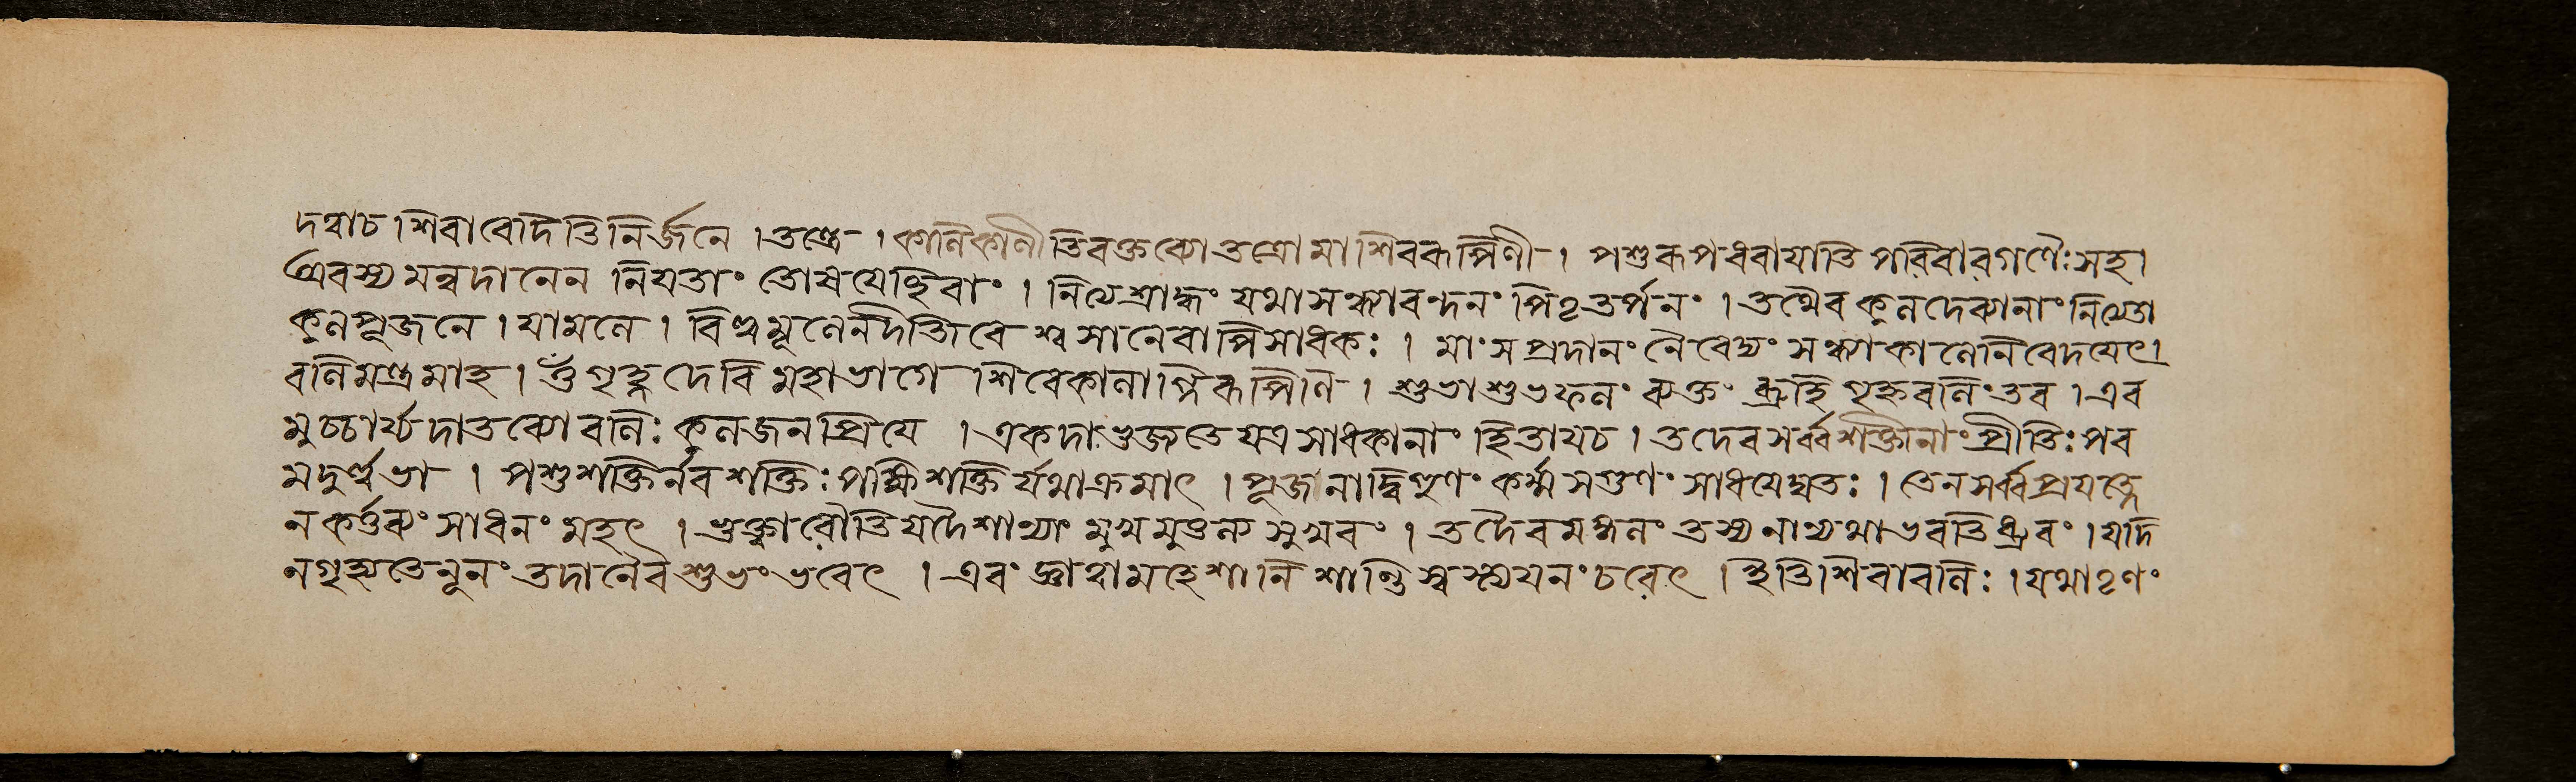 দদ্যাচ্চ । শিবাবেদিতি নির্জনে । তন্ত্রে । কালিকালীতি বক্তব্যে তত্রোমা শিবরূপিণী । পশুরূপধরাযাতি পরিবারগণৈঃ সহ।
অবশ্যমন্নদানেন নিযতাং তোষযেচ্ছিবাং । নিত্যে শ্রাদ্ধং যথা সন্ধ্যাবন্দনং পিতৃতর্পনং । তথৈব কুলদেব্যানাং নিত্যতা
কুলপূজনে । যামলে । বিল্বমূলে নদীতীরে শ্মশানে বাপি সাধকঃ । মাংসপ্রদানং নৈবেদ্যং সন্ধ্যাকালে নিবেদযেৎ।
বলিমন্ত্রমাহ । ওঁ গৃহ্ণ দেবি মহাভাগে শিবে কালাগ্নিরূপিণি । শুভাশুভফলং ব্যক্তং ব্রূহি গৃহ্ণ বলিং তব । এব
মুচ্চার্য্য দাতব্যো বলিঃ কুলজনপ্রিযে । একদা ভুজ্যতে যত্র সাধকানাং হিতায চ । তদেব সর্ব্বশক্তীনাং প্রীতিঃ পর
মদুর্ল্লভা । পশুশক্তির্নরশক্তিঃ পক্ষিশক্তির্যথাক্রমাৎ । পূজানাদ্দ্বিগুণং কর্ম্ম সগুণং সাধযেদ্যতঃ । তেন সর্ব্বপ্রযত্নে
ন কর্ত্তব্যং সাধনং মহৎ । ভুক্ত্বা রৌতি যদৈশান্যাং মুখমুত্তল্য সুস্বরং । তদৈব মঙ্গলং তস্য নান্যথা ভবতি ধ্রুবং । যদি
ন গৃহ্যতে নূনং তদা নৈব শুভং ভবেৎ । এবং জ্ঞাত্বা মহেশানি শান্তিস্বস্ত্যযনং চরেৎ । ইতি শিবাবলিঃ । যথা ঋণং